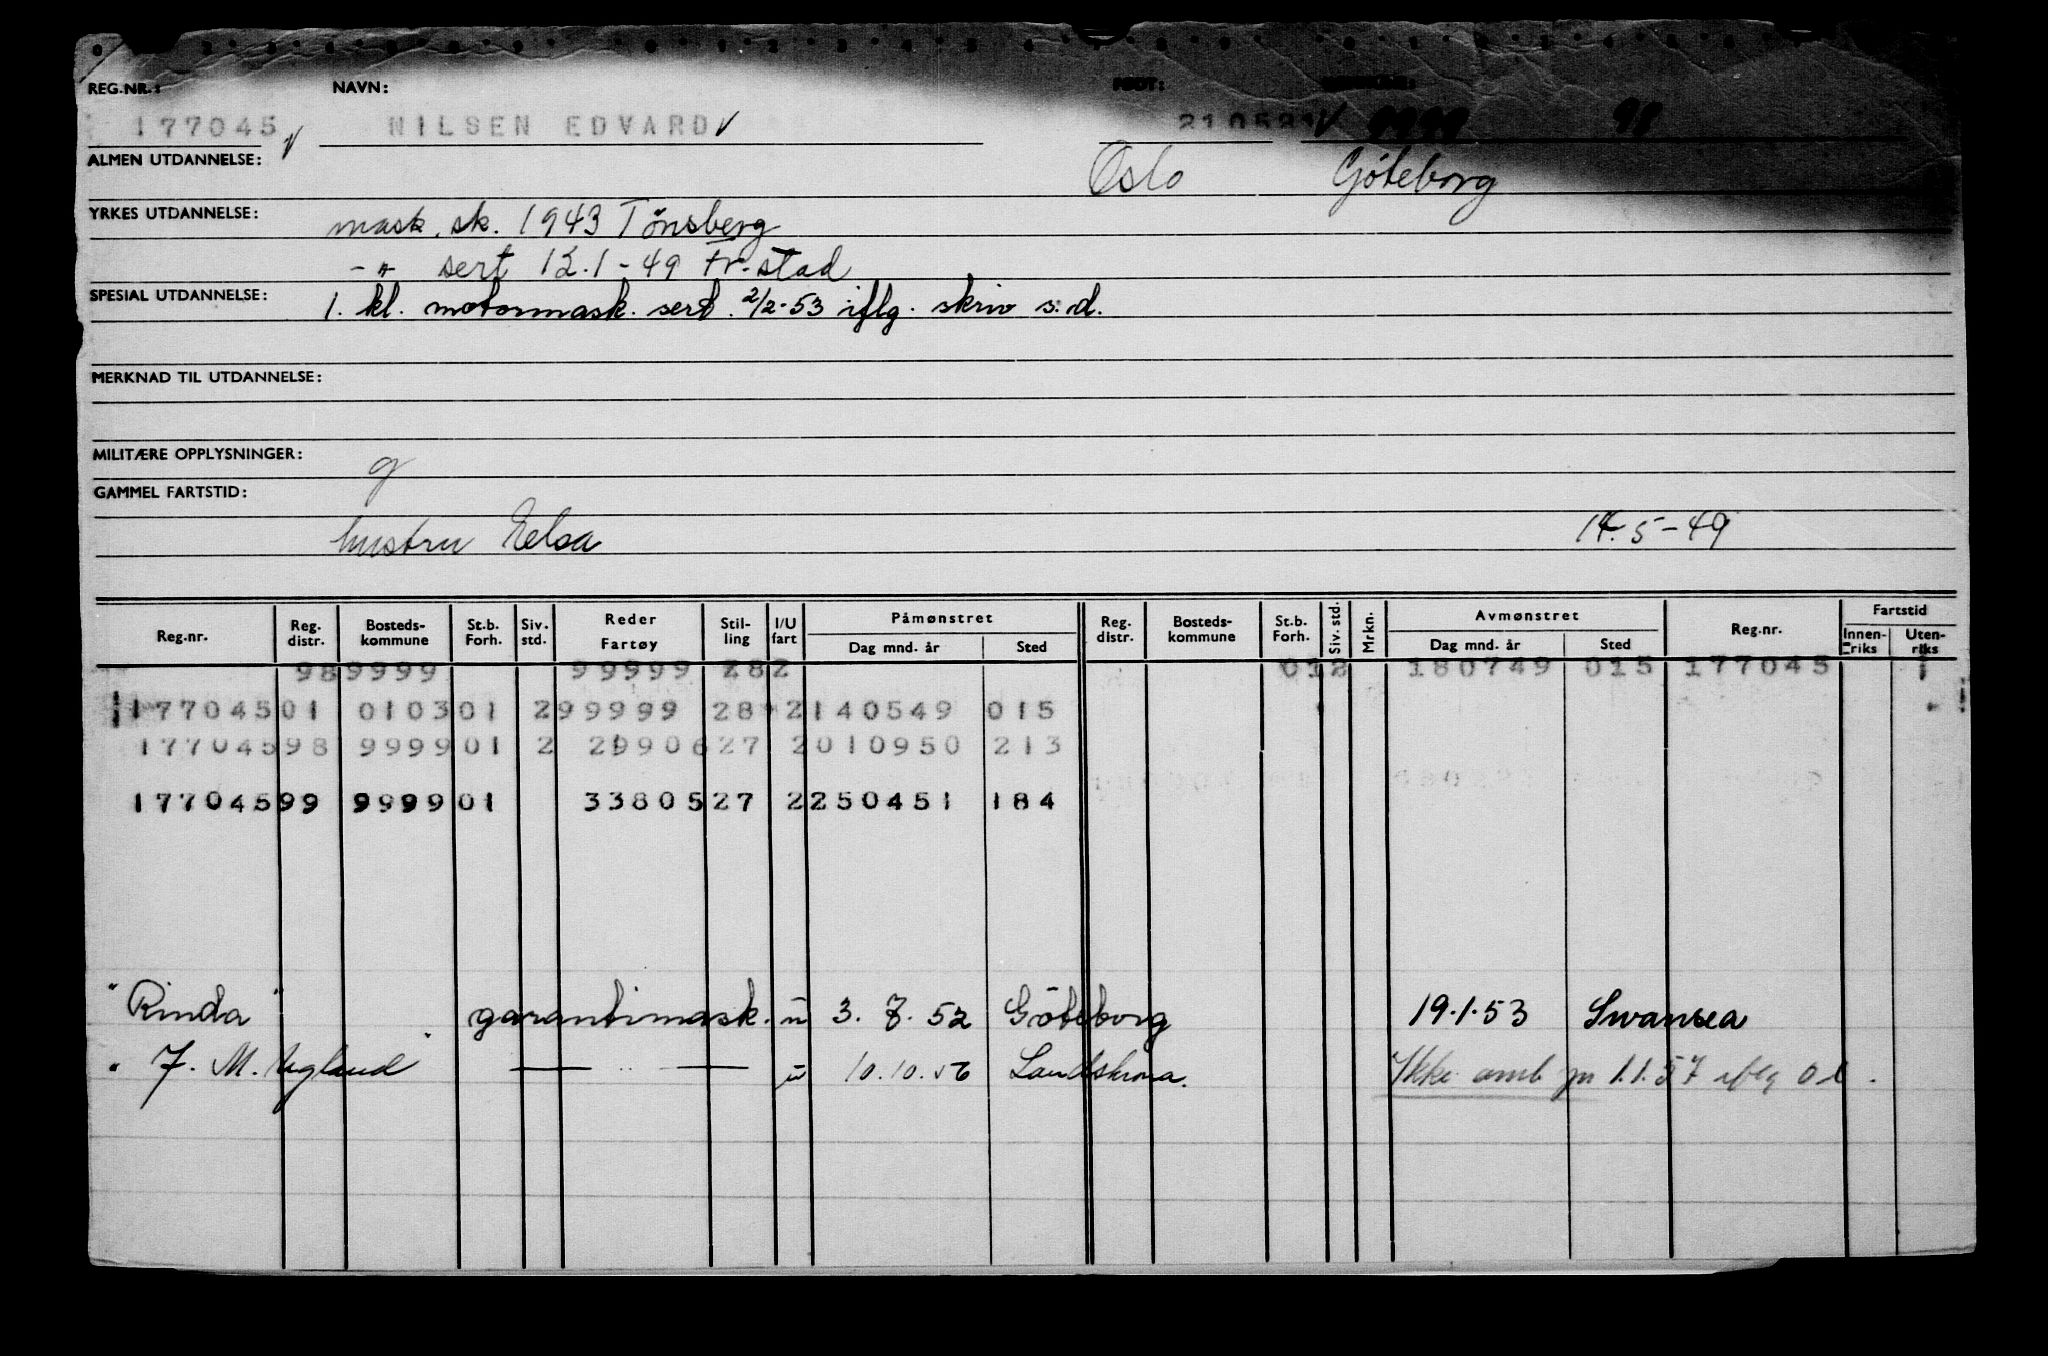 REG.NR.: NAVN: FØDT:
177045 V NILSEN EDVARD V 9999 98
ALMEN UTDANNELSE: Oslo Göteborg
YRKES UTDANNELSE: mask. sk. 1943 Tönsberg
-"- sert 12.1-49 Fr.stad
SPESIAL UTDANNELSE: 1. kl. motormask. sert. 2/2-53 iflg. skriv s.d.
MERKNAD TIL UTDANNELSE:
MILITÆRE OPPLYSNINGER: g
GAMMEL FARTSTID:
hustru Elsa 14.5-49
Reg.nr. Reg. distr. Bosteds-kommune St.b. Forh. Siv. std. Reder Fartøy Stil-ling I/U fart Påmønstret Dag mnd. år Sted Reg. distr. Bosteds-kommune St.b. Forh. Siv. std. Mrkn. Avmønstret Dag mnd. år Sted Reg.nr. Fartstid Innen-riks Uten-riks
98 9999 99999 28 2 01 2 180749 015 177045 1
177045 01 0103 01 2 99999 28 2 140549 015
177045 98 9999 01 2 29906 27 2 010950 213
177045 99 9999 01 33805 27 2 250451 184
"Rinda" garantimask. u 3. 7. 52 Göteborg 19.1.53 Swansea
" J. M. Ugland" — " — u 10.10.56 Landskrona. Ikke omb pr 1.1.57 iflg